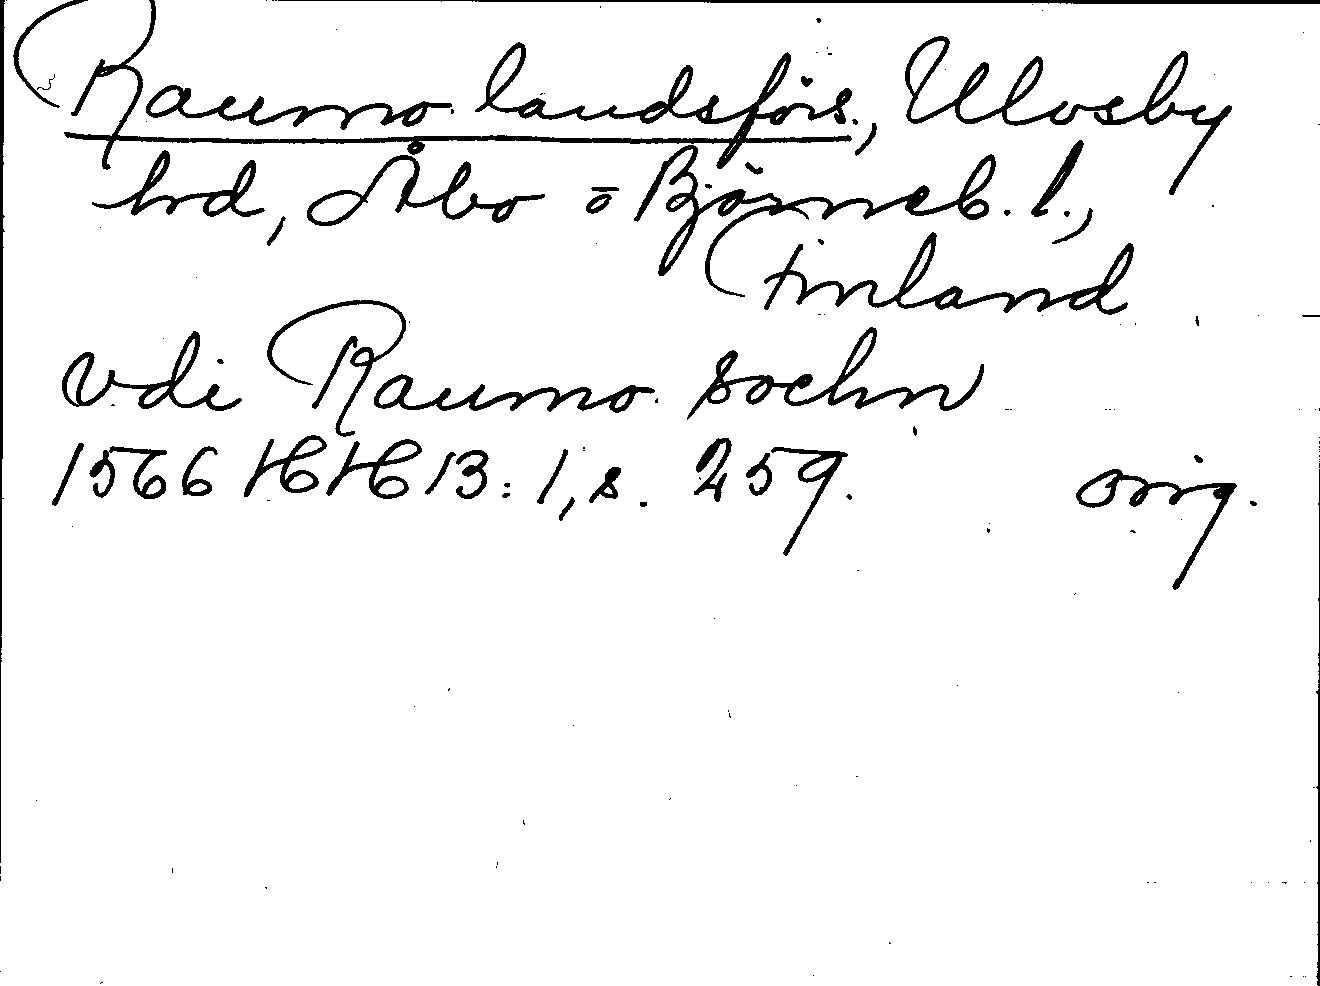 Raumo landsförs., Ulvsby
hrd, Åbo o Björneb. l.,
Finland
vdi Raumo sochn
1566 HH 13:1, s. 259. orig.